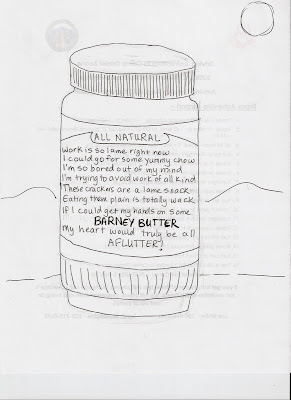 ALL NATURAL
work is so lame right now
I could go for some yummy chow
I'm so bored out of my mind
I'm trying to avoid work of all kind
These crackers are a lame snack
Eating them plain is totally wack
If I could get my hands on some
BARNEY BUTTER
my heart would truly be all
AFLUTTER!